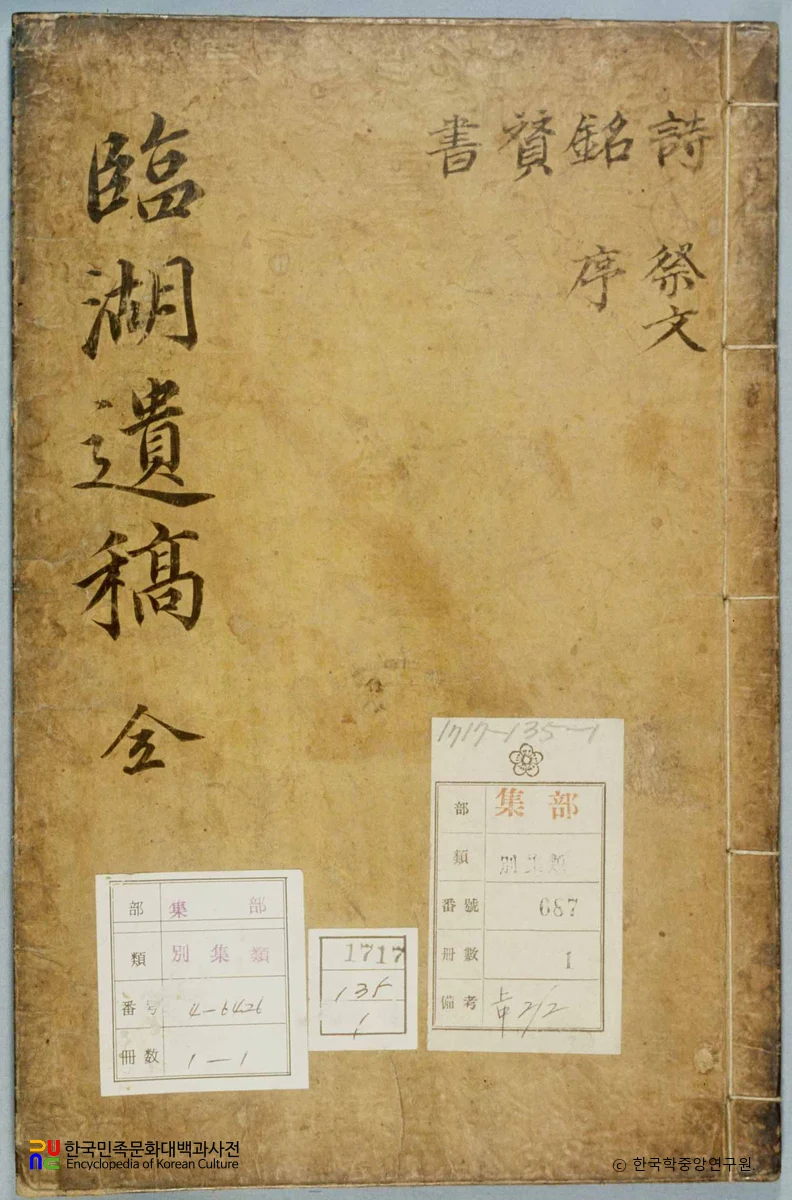 臨湖遺稿 全
詩 銘 賛 書
祭文 序
1717-135-1
部 集部
類 別集類
番號 687
冊數 1
備考
部 集部
類 別集類
番号 4-6426
冊数 1-1
1717
135
1
한국민족문화대백과사전
Encyclopedia of Korean Culture
© 한국학중앙연구원